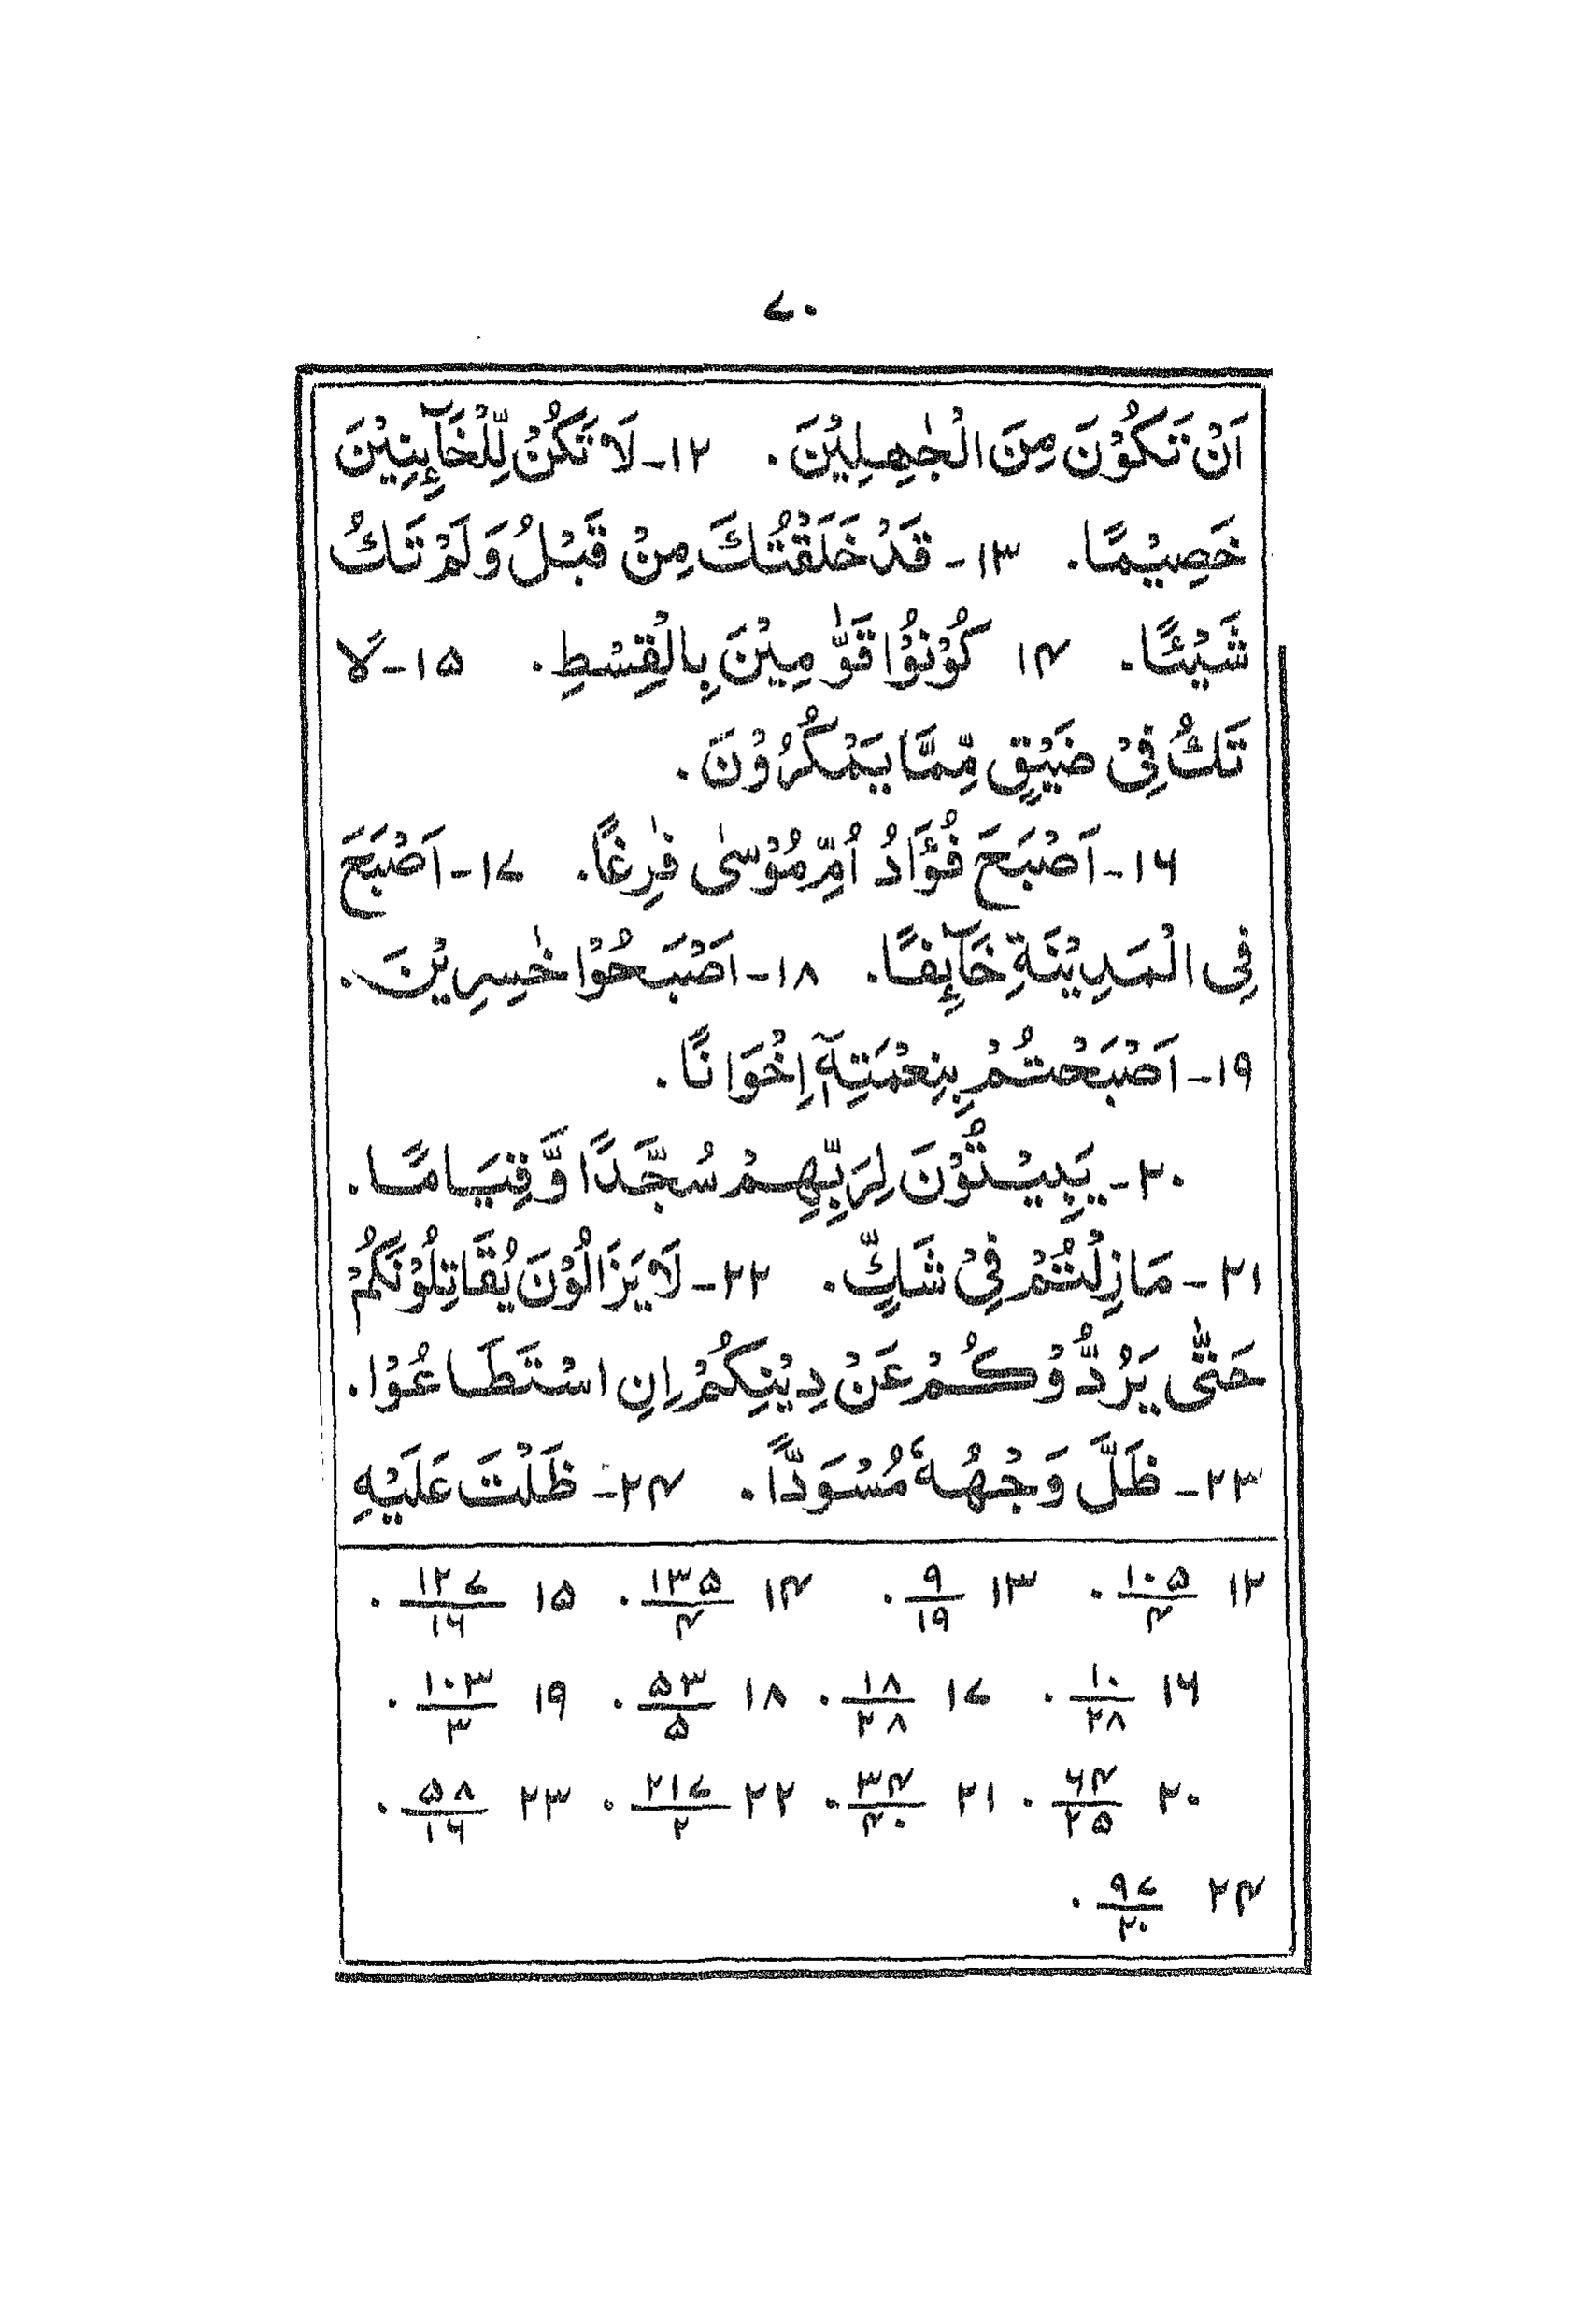 ۷۰
اَنْ تَكُوْنَ مِنَ الْجٰهِلِيْنَ۔ ۱۲- لَا تَكُنْ لِّلْخَآىِٕنِيْنَ
خَصِيْمًا۔ ۱۳- قَدْ خَلَقْتُكَ مِنْ قَبْلُ وَلَمْ تَكُ
شَيْئًا۔ ۱۴ كُوْنُوْا قَوّٰمِيْنَ بِالْقِسْطِ۔ ۱۵- لَا
تَكُ فِىْ ضَيْقٍ مِّمَّا يَمْكُرُوْنَ۔
۱۶- اَصْبَحَ فُؤَادُ اُمِّ مُوْسٰى فٰرِغًا۔ ۱۷- اَصْبَحَ
فِى الْمَدِيْنَةِ خَآىِٕفًا۔ ۱۸- اَصْبَحُوْا خٰسِرِيْنَ۔
۱۹- اَصْبَحْتُمْ بِنِعْمَتِهٖٓ اِخْوَانًا۔
۲۰- يَبِيْتُوْنَ لِرَبِّهِمْ سُجَّدًا وَّقِيَامًا۔
۲۱- مَا زِلْتُمْ فِىْ شَكٍّ۔ ۲۲- لَا يَزَالُوْنَ يُقَاتِلُوْنَكُمْ
حَتّٰى يَرُدُّوْكُمْ عَنْ دِيْنِكُمْ اِنِ اسْتَطَاعُوْا۔
۲۳- ظَلَّ وَجْهُهٗ مُسْوَدًّا۔ ۲۴- ظَلْتَ عَلَيْهِ
۱۲ ۱۰۵/۴۔ ۱۳ ۹/۱۹۔ ۱۴ ۱۳۵/۴۔ ۱۵ ۱۲۷/۱۶۔
۱۶ ۱۰/۲۸۔ ۱۷ ۱۸/۲۸۔ ۱۸ ۵۳/۵۔ ۱۹ ۱۰۳/۳۔
۲۰ ۶۴/۲۵۔ ۲۱ ۳۴/۴۰۔ ۲۲ ۲۱۷/۲۔ ۲۳ ۵۸/۱۶۔
۲۴ ۹۷/۲۰۔